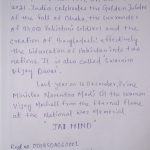 2021 India celebrates the Golden Jubilee
of the fall of Dhaka the surrender
of 93,000 Pakistani soldiers and the
creation of Bangladesh effectively
the bifurcation of Pakistan into two
nations. It is also called Swarnim
Vijay Diwas.
Last year 16 December, Prime
Minister Narendra Modi lit the Swarnim
Vijay Mashall from the Eternal flame
at the National War Memorial
JAI HIND